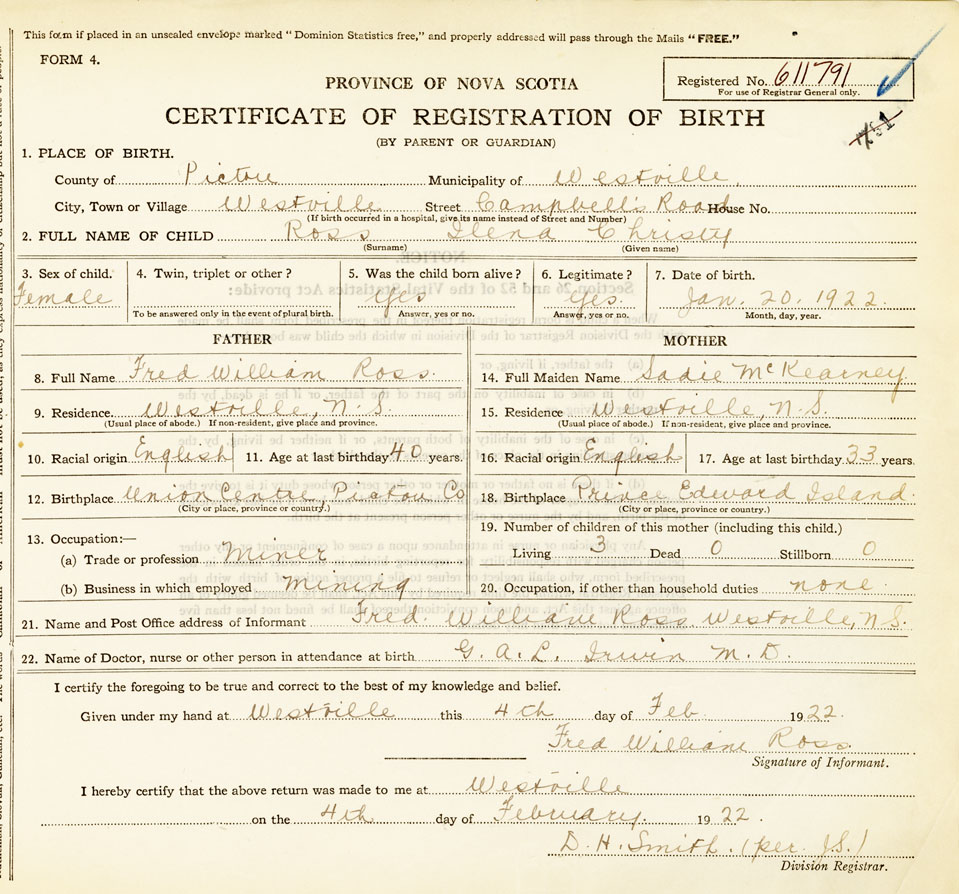 This form if placed in an unsealed envelope marked "Dominion Statistics free," and properly addressed will pass through the Mails "FREE."
FORM 4.
Registered No. 611791
For use of Registrar General only.
PROVINCE OF NOVA SCOTIA
CERTIFICATE OF REGISTRATION OF BIRTH
(BY PARENT OR GUARDIAN)
1. PLACE OF BIRTH.
County of Pictou Municipality of Westville
City, Town or Village Westville Street Campbell's Road House No.
(If birth occurred in a hospital, give its name instead of Street and Number)
2. FULL NAME OF CHILD Ross Ilena Christy
(Surname) (Given name)
3. Sex of child. 4. Twin, triplet or other? 5. Was the child born alive? 6. Legitimate? 7. Date of birth.
Female Yes Yes. Jan. 20. 1922.
To be answered only in the event of plural birth. Answer, yes or no. Answer, yes or no. Month, day, year.
FATHER MOTHER
8. Full Name Fred William Ross. 14. Full Maiden Name Sadie McKearney
9. Residence. Westville, N.S. 15. Residence Westville, N.S.
(Usual place of abode.) If non-resident, give place and province. (Usual place of abode.) If non-resident, give place and province.
10. Racial origin English 11. Age at last birthday 40 years. 16. Racial origin English 17. Age at last birthday 33 years.
12. Birthplace Union Centre, Pictou Co 18. Birthplace Prince Edward Island.
(City or place, province or country.) (City or place, province or country.)
13. Occupation:— 19. Number of children of this mother (including this child.)
(a) Trade or profession Miner Living 3 Dead 0 Stillborn 0
(b) Business in which employed Mining 20. Occupation, if other than household duties none.
21. Name and Post Office address of Informant Fred. William Ross Westville, N.S.
22. Name of Doctor, nurse or other person in attendance at birth G. A. L. Irwin M.D.
I certify the foregoing to be true and correct to the best of my knowledge and belief.
Given under my hand at Westville this 4th day of Feb. 1922.
Fred William Ross.
Signature of Informant.
I hereby certify that the above return was made to me at Westville
on the 4th day of February. 1922.
D. H. Smith. (per. J.S.)
Division Registrar.